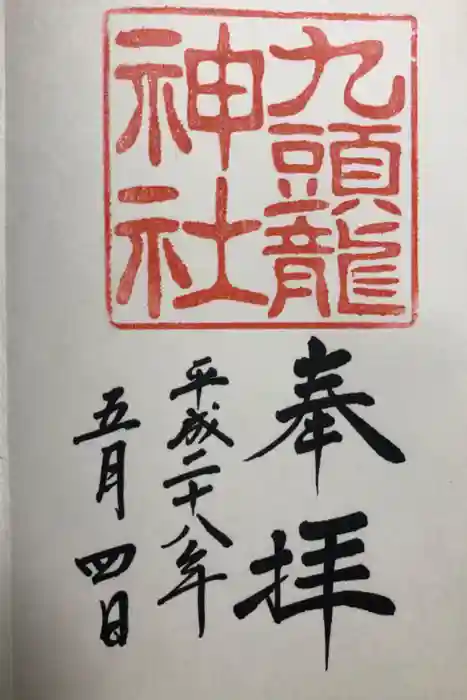 九頭龍
神社
奉拝
平成二十八年
五月四日